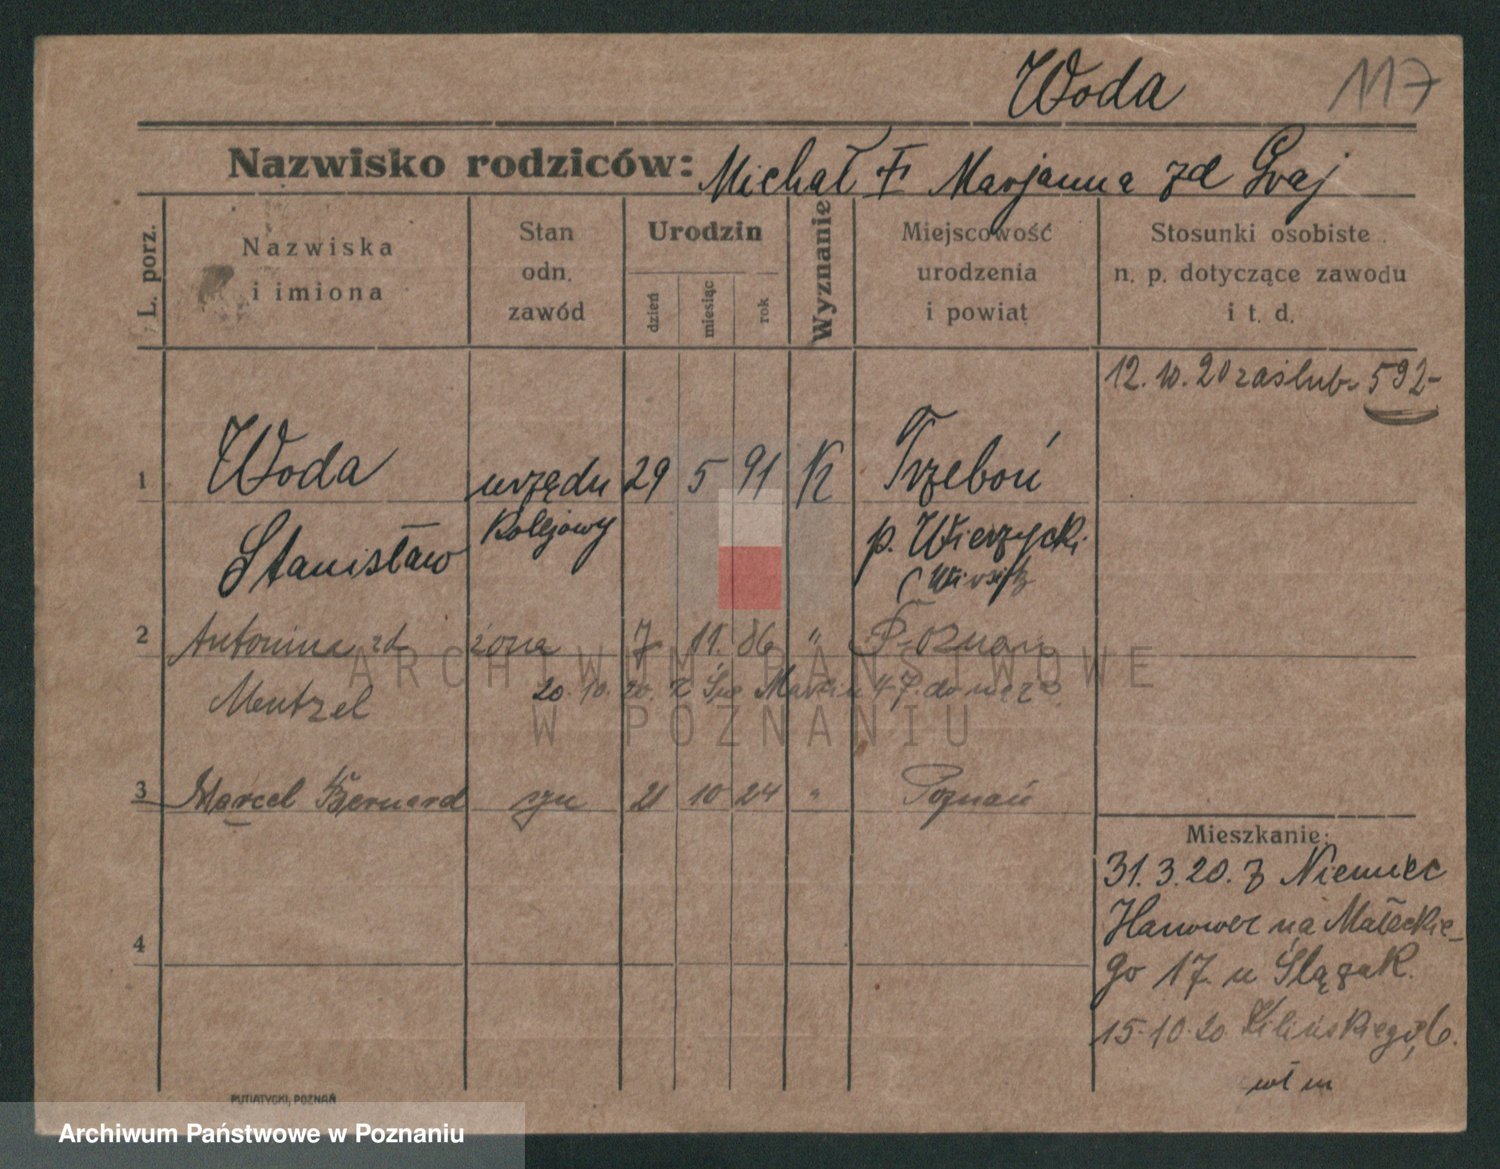 Woda 117
Nazwisko rodziców: Michał Marjanna zd Graj
L. porz.
Nazwiska
i imiona
Stan
odn.
zawód
Urodzin
dzień
miesiąc
rok
Wyznanie
Miejscowość
urodzenia
i powiat
Stosunki osobiste
n. p. dotyczące zawodu
i t. d.
12.10.20 zaślub. 592-
1 Woda urzędn 29 5 91 K Trzeboń
Stanisław Kolejowy p. Wierzycki
(Wirsitz
2 Antonina zd żona 7 11. 86 " Poznań
Mentzel 20.10.20. z Św Marcin 47. do męża
3 Marcel Bernard syn 21 10 24 " Poznań
Mieszkanie:
31.3.20. z Niemiec
Hanower na Małeckie-
go 17. u Ślązak.
4
15.10.20 Kilińskiego 6.
wł m
PUTIATYCKI, POZNAŃ
ARCHIWUM PAŃSTWOWE
W POZNANIU
Archiwum Państwowe w Poznaniu